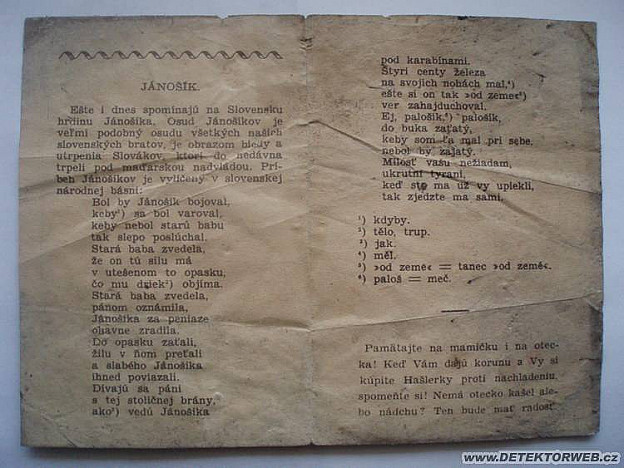 JÁNOŠÍK.
Ešte i dnes spomínajú na Slovensku
hrdinu Jánošíka. Osud Jánošíkov je
veľmi podobný osudu všetkých našich
slovenských bratov, je obrazom biedy a
utrpenia Slovákov, ktorí do nedávna
trpeli pod maďarskou nadvládou. Prí-
beh Jánošíkov je vylíčený v slovenskej
národnej básni:
Bol by Jánošík bojoval,
keby¹) sa bol varoval,
keby nebol starú babu
tak slepo poslúchal.
Stará baba zvedela,
že on tú silu má
v utešenom to opasku,
čo mu driek²) objíma.
Stará baba zvedela,
pánom oznámila,
Jánošíka za peniaze
ohavne zradila.
Do opasku zaťali,
žilu v ňom preťali
a slabého Jánošíka
ihneď poviazali.
Dívajú sa páni
s tej stoličnej brány,
ako³) vedú Jánošíka
pod karabínami.
Štyri centy železa
na svojich nohách mal,⁴)
ešte si on tak »od zeme«⁵)
ver zahajduchoval.
Ej, palošík,⁶) palošík,
do buka zaťatý,
keby som ťa mal pri sebe,
nebol by zajatý.
Milosť vašu nežiadam,
ukrutní tyrani,
keď ste ma už vy upiekli,
tak zjedzte ma sami.
¹) kdyby.
²) tělo, trup.
³) jak.
⁴) měl.
⁵) »od zeme« = tanec »od země«.
⁶) paloš = meč.
Pamätajte na mamičku i na otec-
ka! Keď Vám dajú korunu a Vy si
kúpite Hašlerky proti nachladeniu,
spomeňte si! Nemá otecko kašeľ ale-
bo nádchu? Ten bude mať radosť
www.DETEKTORWEB.cz